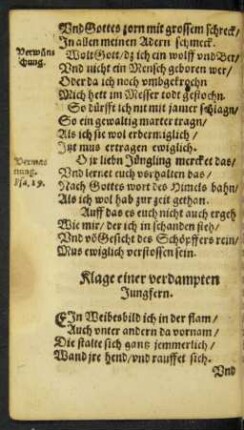 Vnd Gottes zorn mit grossem schreck/
In allen meinen Adern schmeck.
Verwün-
schung.
Wolt Gott/ dz ich ein wolff vnd Ber/
Vnd nicht ein Mensch geboren wer/
Oder da ich noch vmbgekrochn
Mich hett im Messer todt gestochn.
So dürfft ich nit mit jamer schlagn
So ein gewaltig marter tragn/
Als ich sie wol erbermiglich/
Itzt mus ertragen ewiglich.
Verma-
nung.
Psa. 19.
O jr liebn Jüngling mercket das/
Vnd lernet euch vorhalten bas/
Nach Gottes wort des Himels bahn/
Als ich wol hab zur zeit gethan.
Auff das es euch nicht auch ergeh
Wie mir/ der ich in schanden steh/
Vnd vō Gesicht des Schöpffers rein/
Mus ewiglich verstossen sein.
Klage einer verdampten
Jungfern.
EIn Weibesbild ich in der flam/
Auch vnter andern da vornam/
Die stalte sich gantz jemmerlich/
Wand jre hend/ vnd rauffet sich.
Vnd